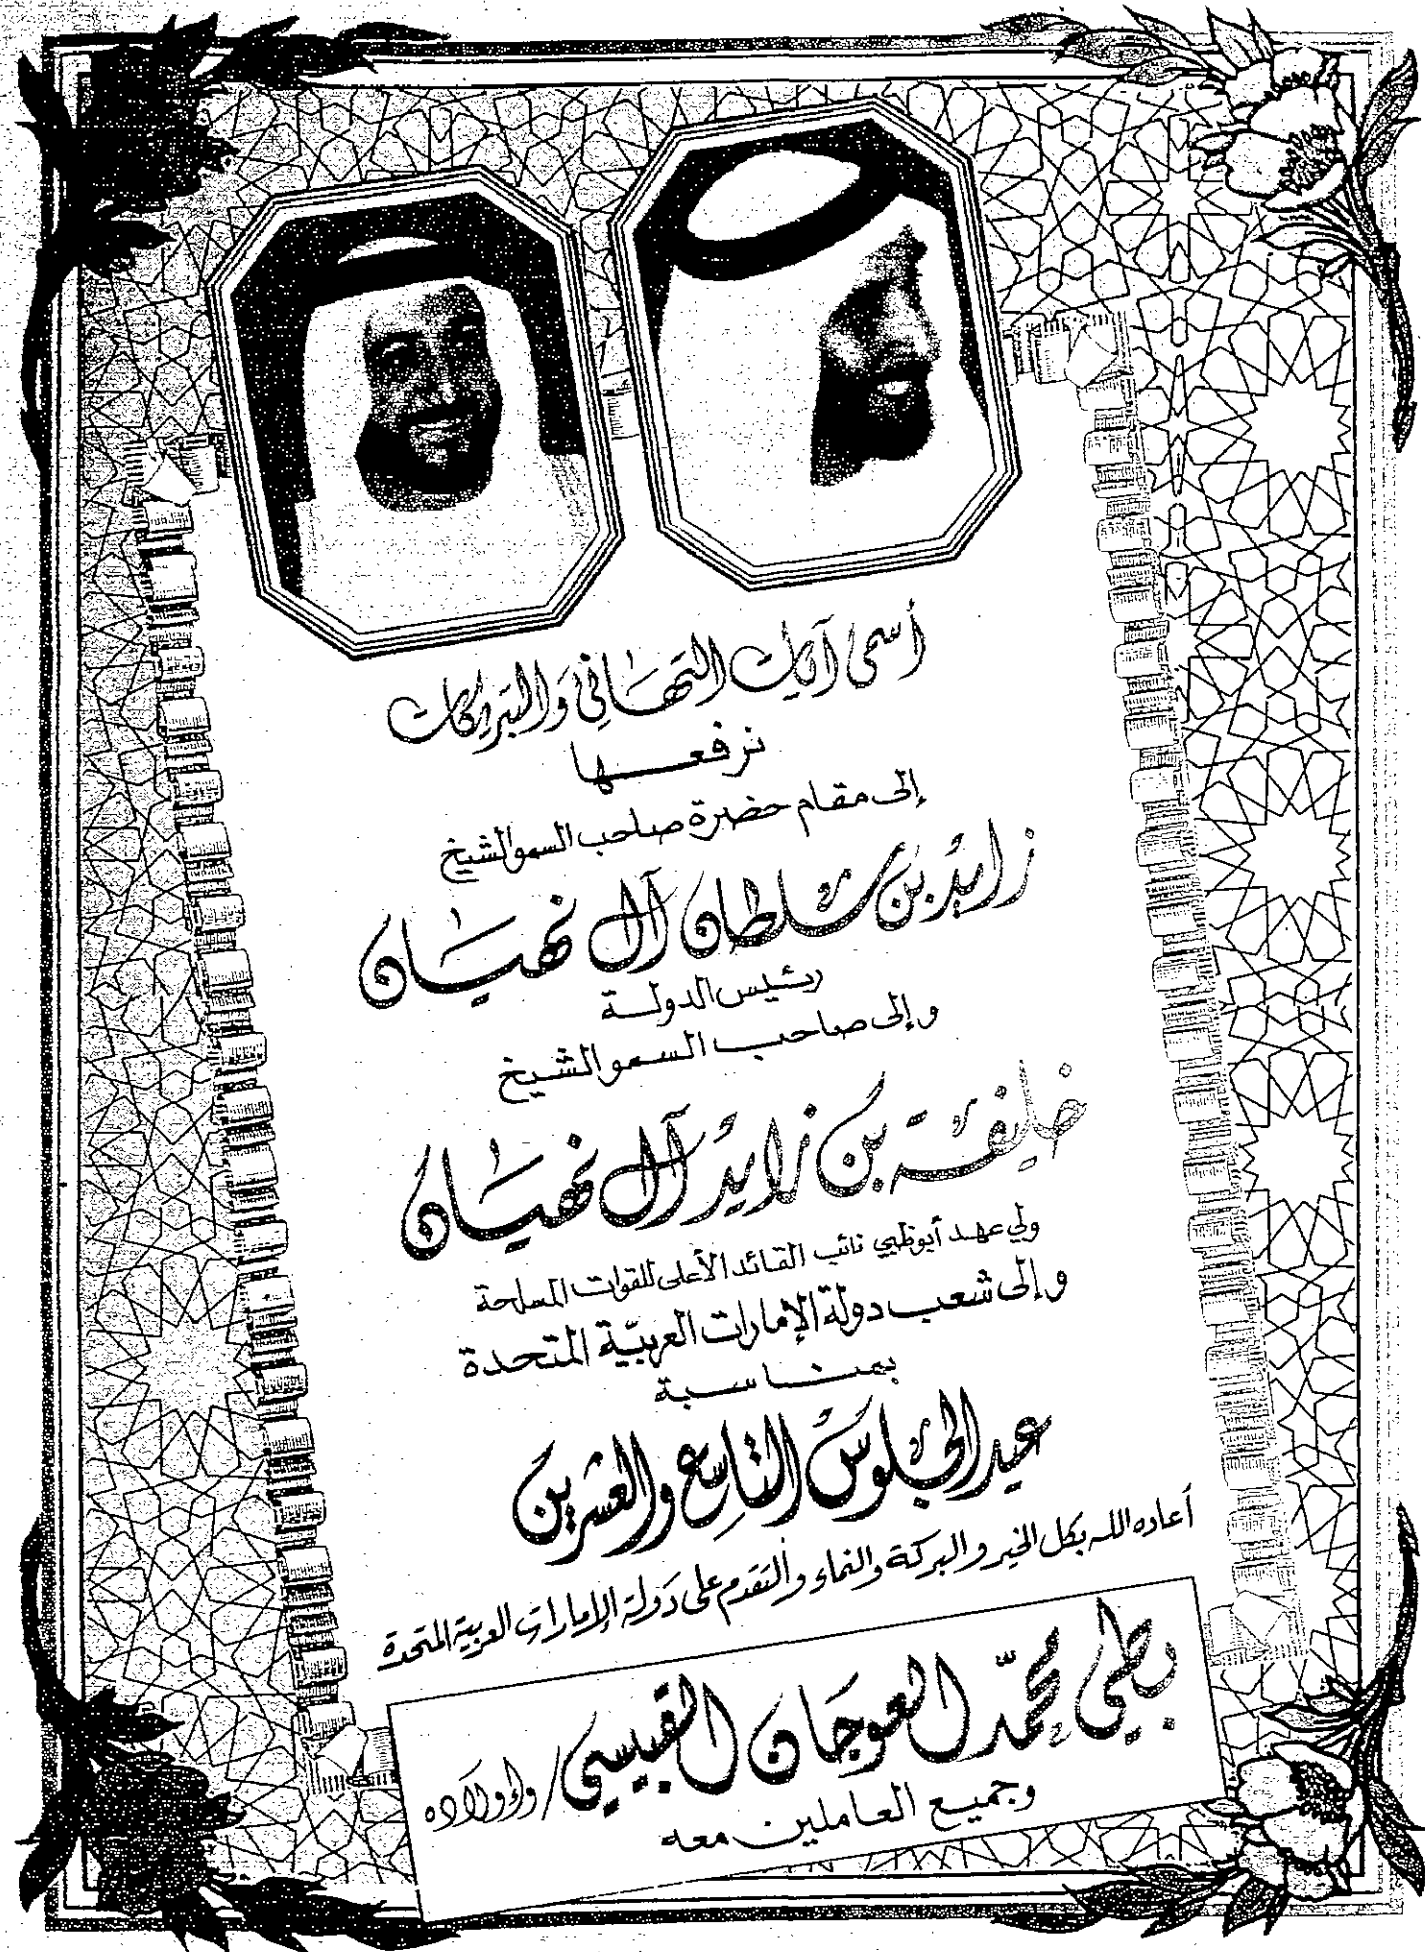 أسمى آيات التهاني والتبريكات
نرفعها
إلى مقام حضرة صاحب السمو الشيخ
زايد بن سلطان آل نهيان
رئيس الدولة
وإلى صاحب السمو الشيخ
خليفة بن زايد آل نهيان
ولي عهد أبوظبي نائب القائد الأعلى للقوات المسلحة
وإلى شعب دولة الإمارات العربية المتحدة
بمناسبة
عيد الجلوس التاسع والعشرين
أعاده الله بكل الخير والبركة والنماء والتقدم على دولة الإمارات العربية المتحدة
بطي محمد العوجان القبيسي / وأولاده
وجميع العاملين معه